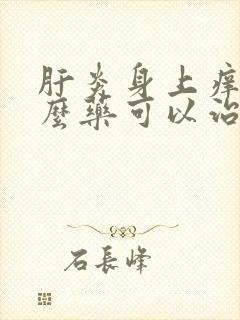 肝炎身上痒
麼藥可以治
石長峰